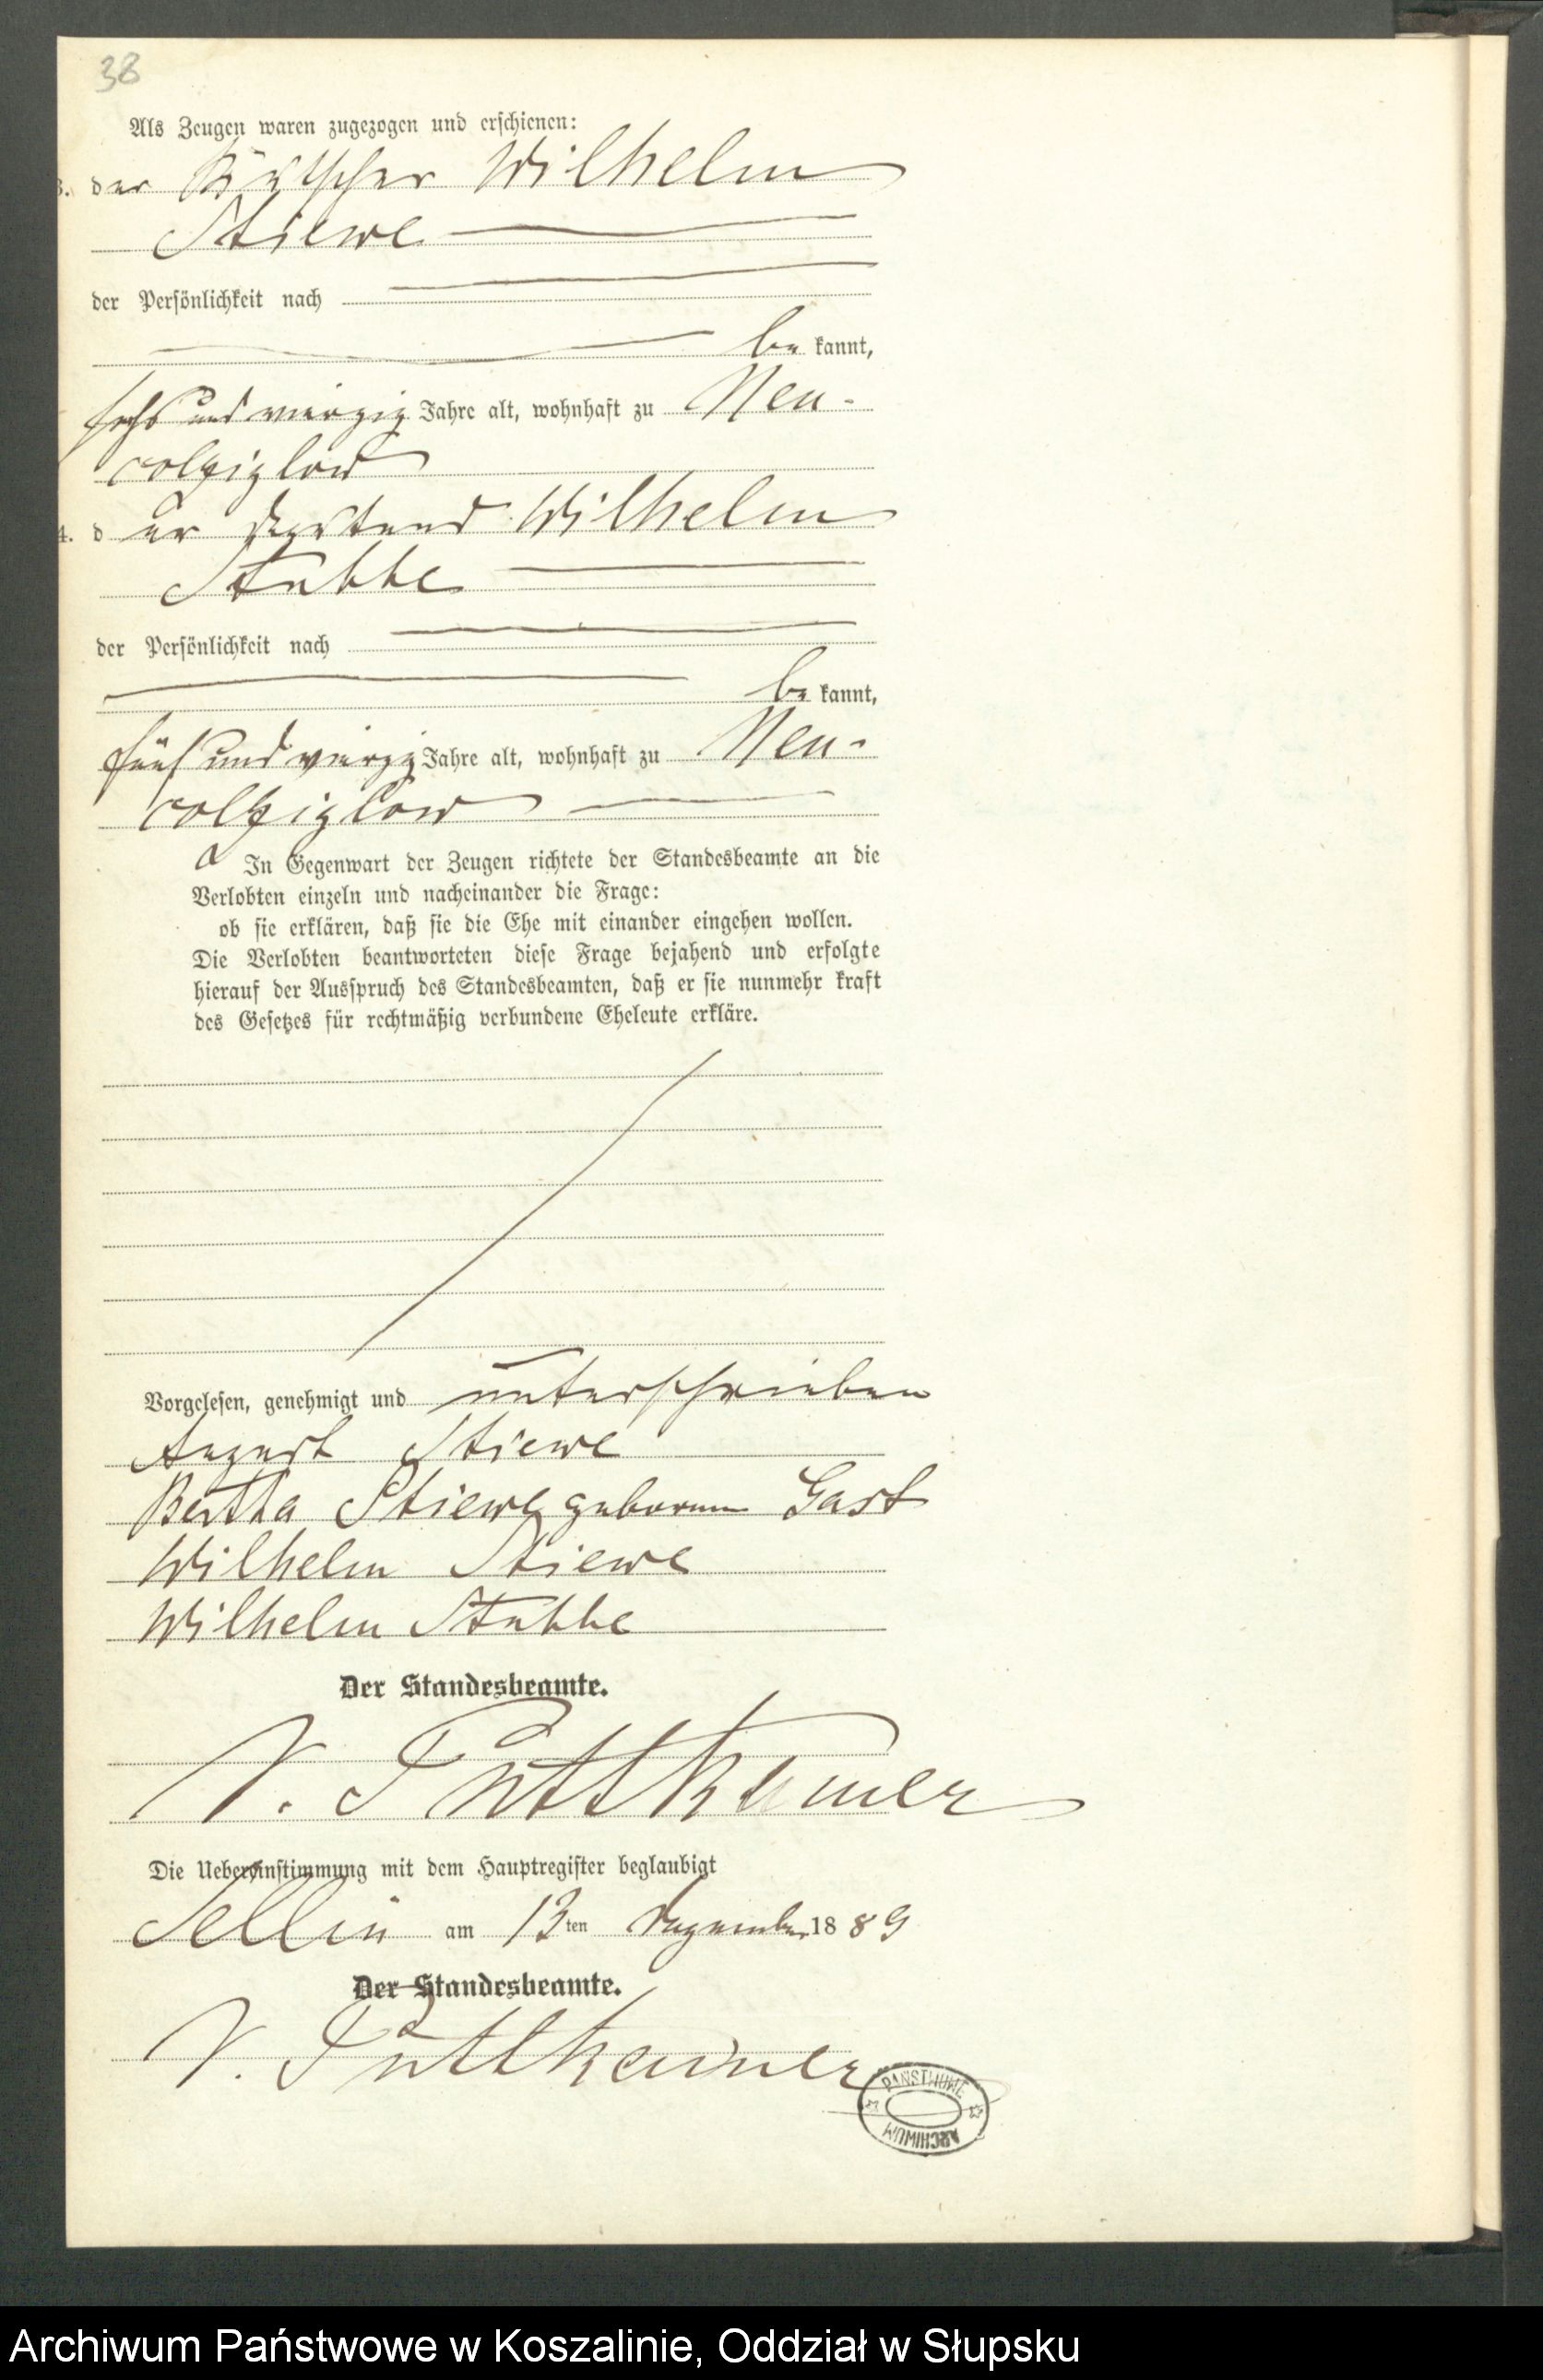 38
Als Zeugen waren zugezogen und erschienen:
3. der Wilhelm
Stiewe
der Persönlichkeit nach
be kannt,
sechs und vierzig Jahre alt, wohnhaft zu Neu-
colziglow
4. d er Wilhelm
Stubbe
der Persönlichkeit nach
be kannt,
fünf und vierzig Jahre alt, wohnhaft zu Neu-
colziglow
In Gegenwart der Zeugen richtete der Standesbeamte an die
Verlobten einzeln und nacheinander die Frage:
ob sie erklären, daß sie die Ehe mit einander eingehen wollen.
Die Verlobten beantworteten diese Frage bejahend und erfolgte
hierauf der Ausspruch des Standesbeamten, daß er sie nunmehr kraft
des Gesetzes für rechtmäßig verbundene Eheleute erkläre.
Vorgelesen, genehmigt und unterschrieben
August Stiewe
Bertha Stiewe geborene Gast
Wilhelm Stiewe
Wilhelm Stubbe
Der Standesbeamte.
v. Puttkamer
Die Uebereinstimmung mit dem Hauptregister beglaubigt
Sellin am 13ten Dezember 1889
Der Standesbeamte.
v. Puttkamer
PAŃSTWOWE
ARCHIWUM
Archiwum Państwowe w Koszalinie, Oddział w Słupsku